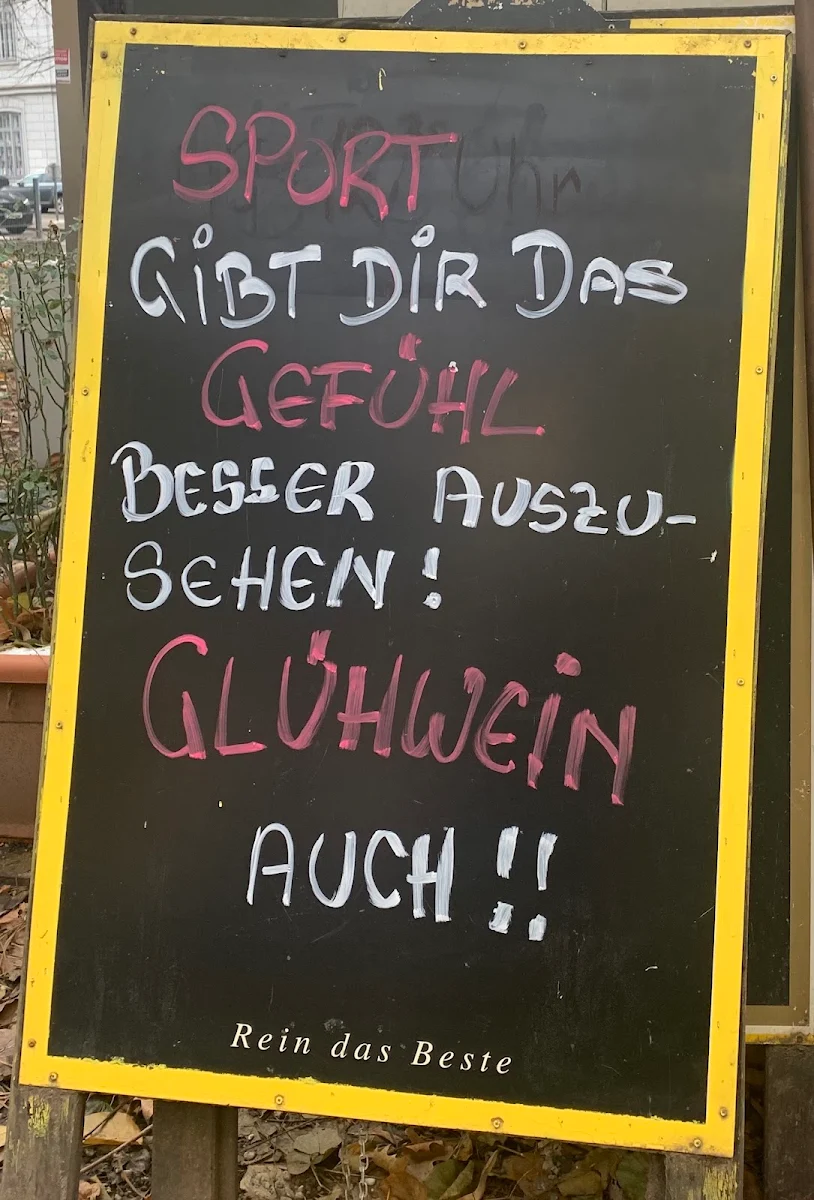 SPORT
GIBT DIR DAS
GEFÜHL
BESSER AUSZU-
SEHEN!
GLÜHWEIN
AUCH!!
Rein das Beste